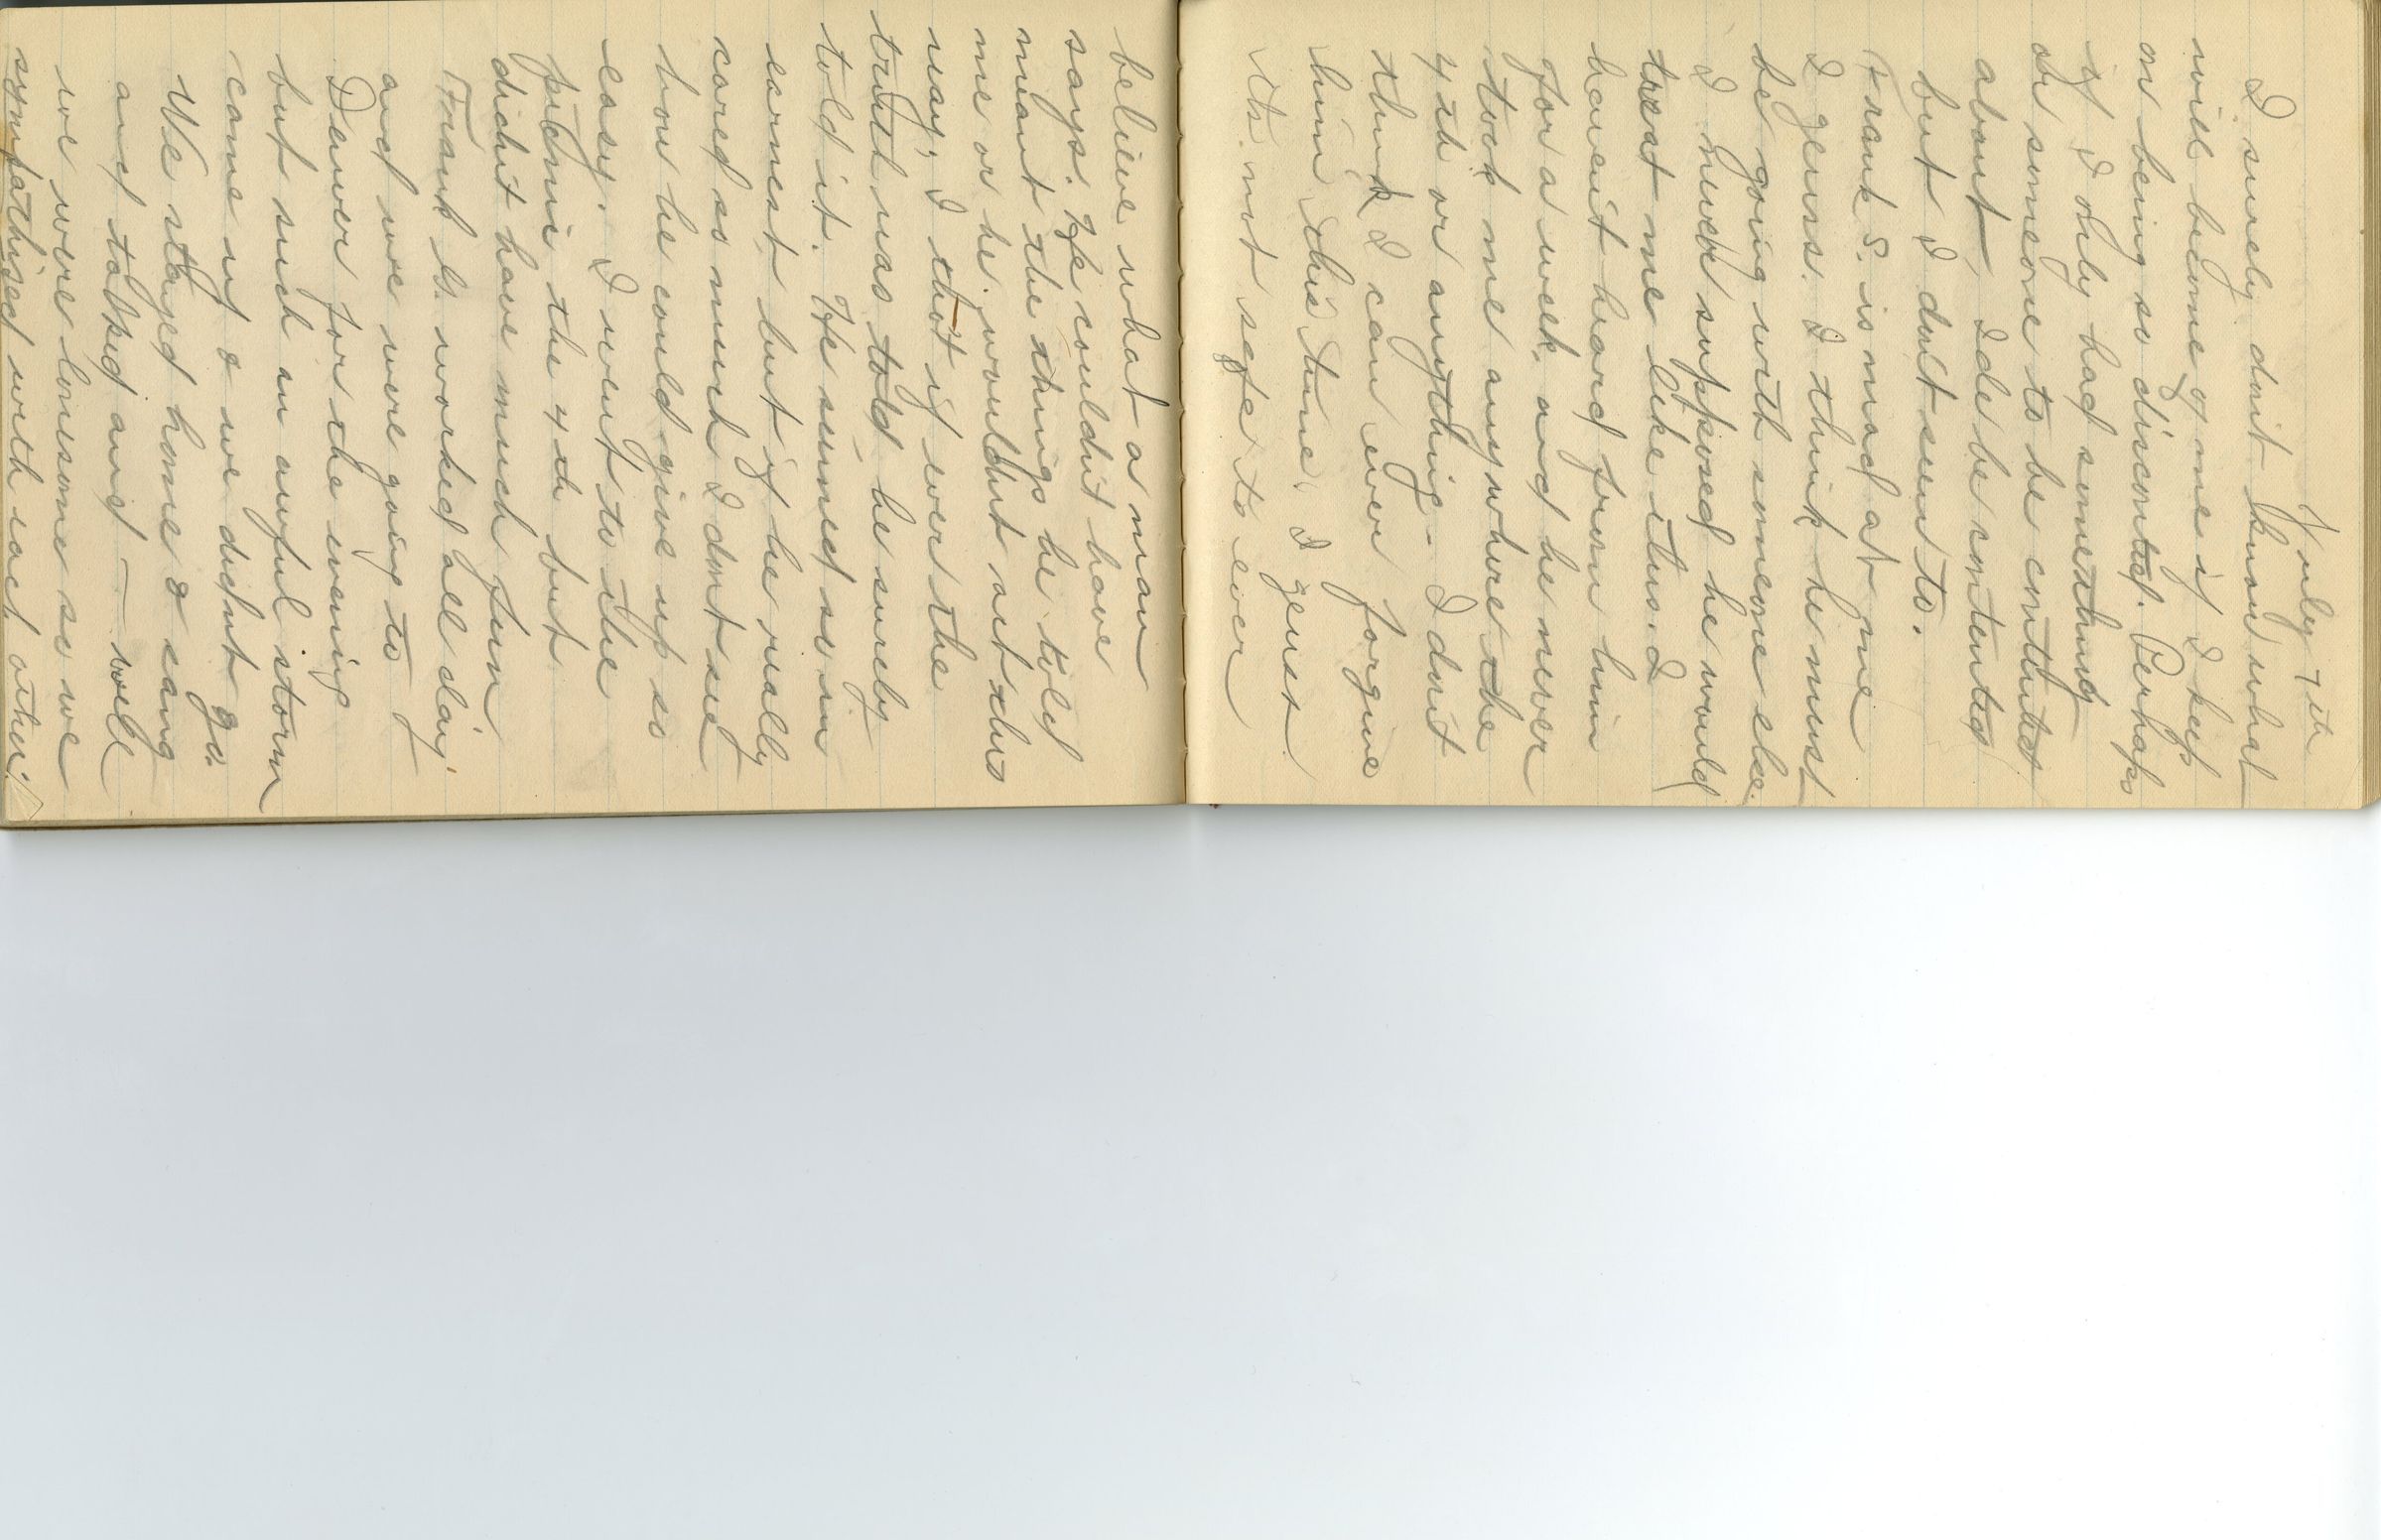 July 7th
I surely don't know what
will become of me if I keep
on being so discontd. Perhaps
if I only had something
or someone to be contented
about, Ide be contented
but I dont seem to.
Frank S. is mad at me
I guess. I think he must
be going with someone else.
I never supposed he would
treat me like itus. I
haven't heard from him
for a week, and he never
took me anywhere the
4th or anything - I don't
think I can ever forgive
him this time, I guess.
Its not safe to ever
believe what a man
says. He couldn't have
meant the things he told
me or he wouldnt act this
way, I thot if ever the
truth was told he surely
told it. He seemed so in
earnest but if he really
cared so much I dont see
how he could give up so
easy. I went to the
picknic the 4th but
didn't have much fun.
Frank G. worked all day
and we were going to
Denver for the evening
but such an awful storm
came up & we didnt go.
We stayed home & sang
and talked and — well
we were lonesome so we
sympathized with each other.